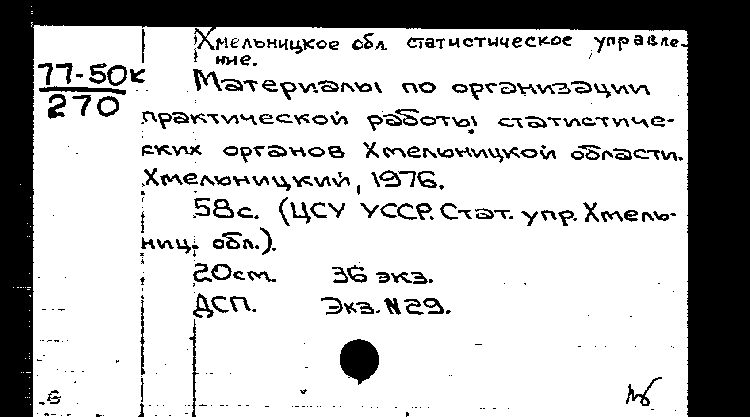 Хмельницкое обл. статистическое управле-
ние.
77-50к
270
Материалы по организации
практической работы статистиче-
ских органов Хмельницкой области.
Хмельницкий, 1976.
58с. (ЦСУ УССР. Стат. упр. Хмель-
ниц. обл.).
20см. 36 экз.
ДСП. Экз. №29.